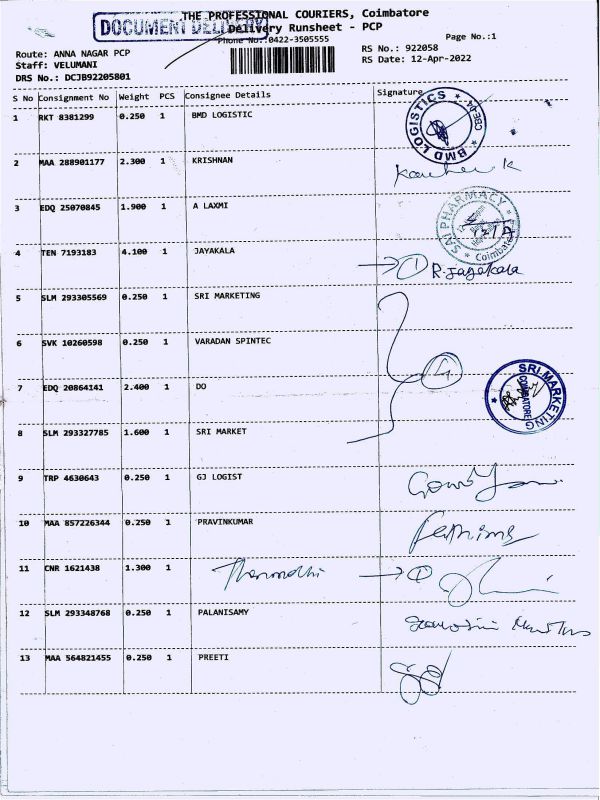 THE PROFESSIONAL COURIERS, Coimbatore
DOCUMENT DELIVERY
Delivery Runsheet - PCP
Phone No.:0422-3505555
Page No.:1
Route: ANNA NAGAR PCP
Staff: VELUMANI
DRS No.: DCJB92205801
RS No.: 922058
RS Date: 12-Apr-2022
S No Consignment No Weight PCS Consignee Details Signature
1 RKT 8381299 0.250 1 BMD LOGISTIC
BMD LOGISTICS
2 MAA 288901177 2.300 1 KRISHNAN
3 EDQ 25070845 1.900 1 A LAXMI
SAI PHARMACY
Coimbatore
4 TEN 7193183 4.100 1 JAYAKALA
1 R.Jayakala
5 SLM 293305569 0.250 1 SRI MARKETING
6 SVK 10260598 0.250 1 VARADAN SPINTEC
4
7 EDQ 20864141 2.400 1 DO
SRI MARKETING
COIMBATORE
8 SLM 293327785 1.600 1 SRI MARKET
9 TRP 4630643 0.250 1 GJ LOGIST
10 MAA 857226344 0.250 1 PRAVINKUMAR
11 CNR 1621438 1.300 1
1
12 SLM 293348768 0.250 1 PALANISAMY
13 MAA 564821455 0.250 1 PREETI